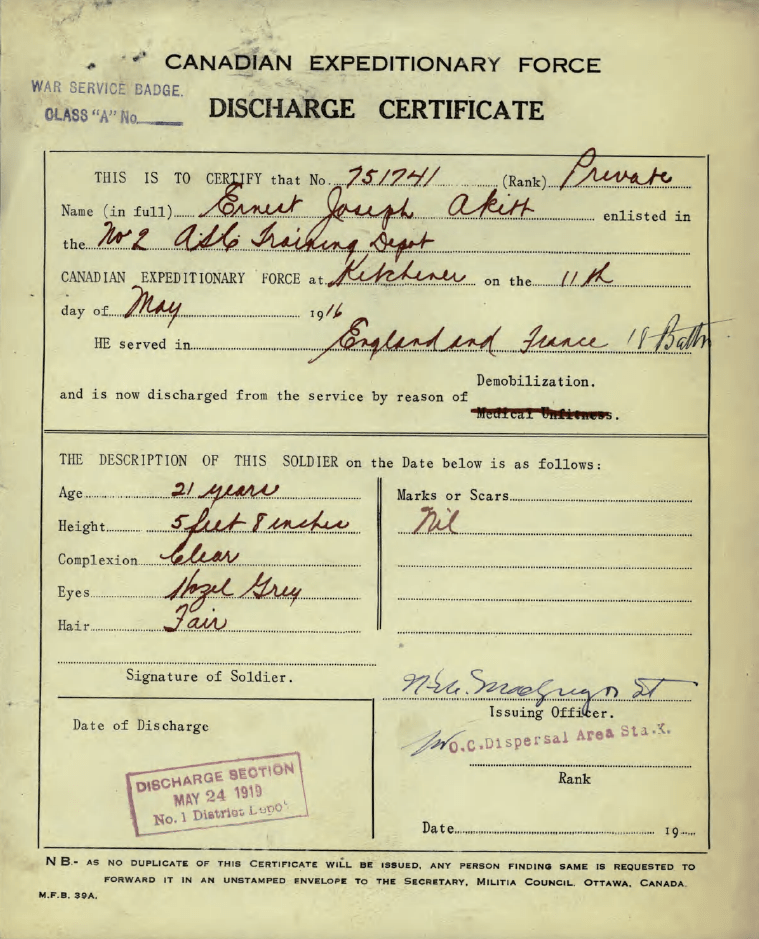 CANADIAN EXPEDITIONARY FORCE
WAR SERVICE BADGE.
CLASS "A" No.
DISCHARGE CERTIFICATE
THIS IS TO CERTIFY that No. 751741 (Rank) Private
Name (in full) Ernest Joseph Akitt enlisted in
the No 2 ASC Training Depot
CANADIAN EXPEDITIONARY FORCE at Kitchener on the 11th
day of May 1916
HE served in England and France 18 Battn
Demobilization.
and is now discharged from the service by reason of
Medical Unfitness.
THE DESCRIPTION OF THIS SOLDIER on the Date below is as follows:
Age 21 years
Marks or Scars
Height 5 feet 8 inches
Nil
Complexion Clear
Eyes Hazel Grey
Hair Fair
Signature of Soldier.
MacGregor Lt
Issuing Officer.
Date of Discharge
O.C. Dispersal Area Sta. K.
Rank
DISCHARGE SECTION
MAY 24 1919
No. 1 District Depot
Date 19
N B.- AS NO DUPLICATE OF THIS CERTIFICATE WILL BE ISSUED, ANY PERSON FINDING SAME IS REQUESTED TO
FORWARD IT IN AN UNSTAMPED ENVELOPE TO THE SECRETARY, MILITIA COUNCIL. OTTAWA, CANADA.
M.F.B. 39A.